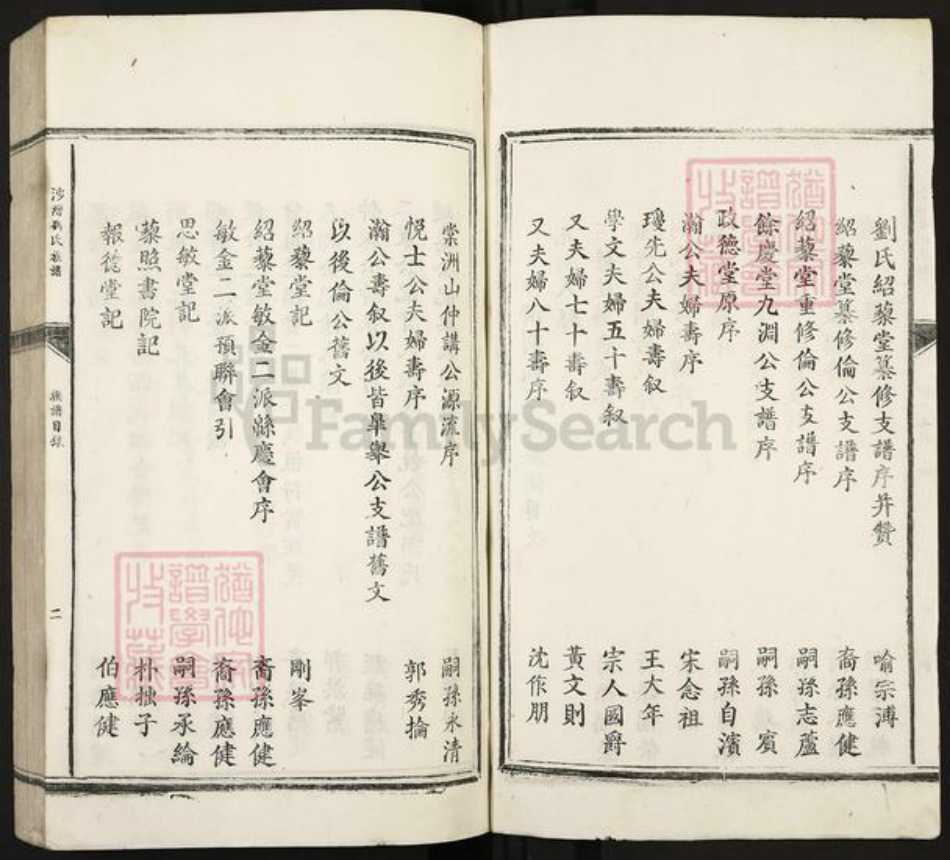 劉氏紹藜堂纂修支譜序并贊 喻宗溥
紹藜堂纂修倫公支譜序 裔孫應健
紹藜堂重修倫公支譜序 嗣孫志蘆
餘慶堂九淵公支譜序 嗣孫賓
政德堂原序 嗣孫自濱
瀚公夫婦壽序 宋念祖
瓊先公夫婦壽叙 王大年
學文夫婦五十壽叙 宗人國爵
又夫婦七十壽叙 黃文則
又夫婦八十壽序 沈作朋
棠洲山仲講公源流序 嗣孫永清
悅士公夫婦壽序 郭秀掄
瀚公壽叙以後皆畢舉公支譜舊文
以後倫公舊文
紹藜堂記 剛峯
紹藜堂敏金二派緜慶會序 裔孫應健
敏金二派預聯會引 裔孫應健
思敏堂記 嗣孫承綸
藜照書院記 朴拙子
報德堂記 伯應健
氏族譜
族譜目錄
二
FamilySearch